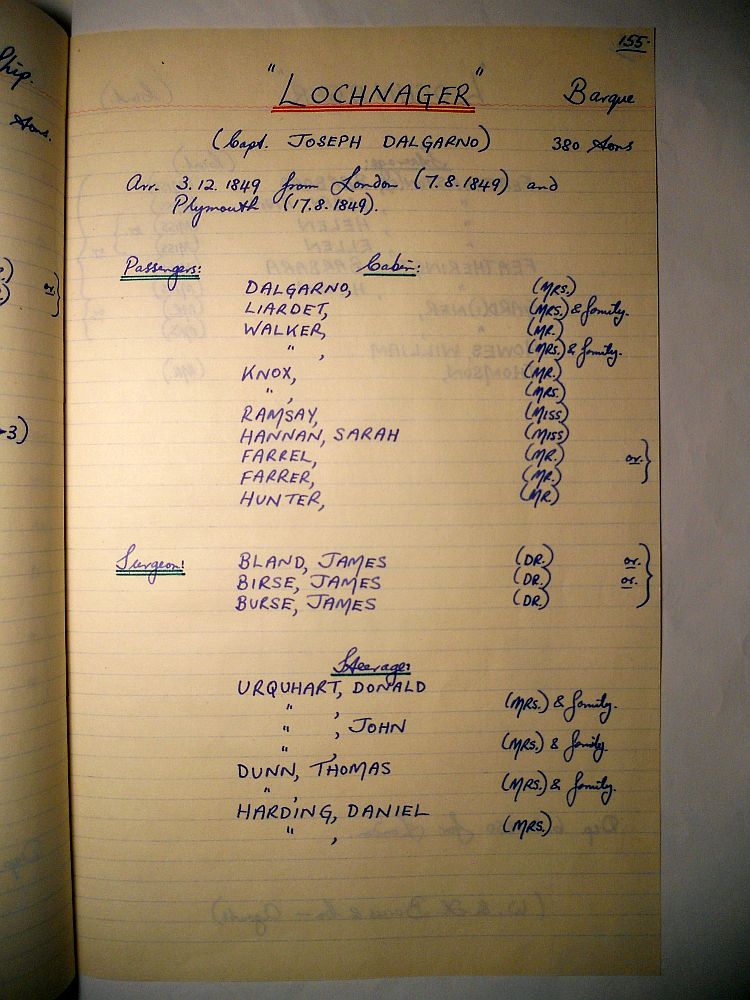 155.
"LOCHNAGER" Barque
(Capt. JOSEPH DALGARNO) 380 tons
Arr. 3.12.1849 from London (7.8.1849) and
Plymouth (17.8.1849).
Passengers: Cabin:
DALGARNO, (MRS.)
LIARDET, (MRS.) & family.
WALKER, (MR.)
" , (MRS.) & family.
KNOX, (MR.)
" , (MRS.)
RAMSAY, (MISS)
HANNAN, SARAH (MISS)
FARREL, (MR.) or. }
FARRER, (MR.)
HUNTER, (MR.)
Surgeon: BLAND, JAMES (DR.) or. }
BIRSE, JAMES (DR.) or.
BURSE, JAMES (DR.)
Steerage:
URQUHART, DONALD
" , (MRS.) & family.
" , JOHN
" , (MRS.) & family.
DUNN, THOMAS
" , (MRS.) & family.
HARDING, DANIEL
" , (MRS.)
Ship.
tons.
or}
3)